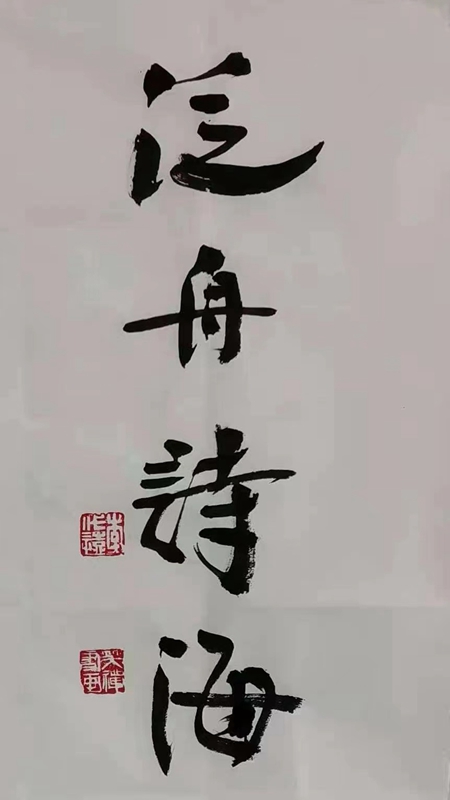 泛舟詩海